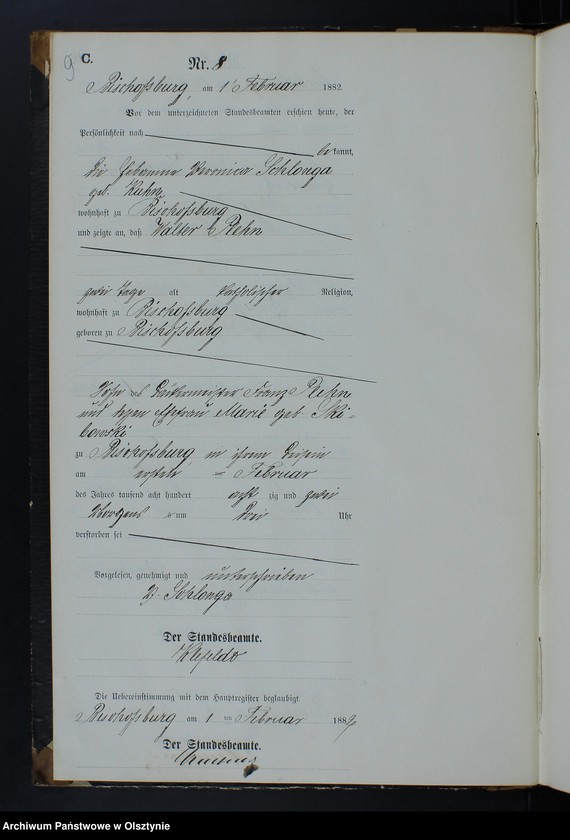 9
C.
Nr. 8
Bischofsburg, am 1ten Februar 1882.
Vor dem unterzeichneten Standesbeamten erschien heute, der
Persönlichkeit nach
bekannt,
die Hebamme Veronica Schlonga
geb. Kuhn
wohnhaft zu Bischofsburg
und zeigte an, daß Walter Rehn
zwei Tage alt katholischer Religion,
wohnhaft zu Bischofsburg
geboren zu Bischofsburg
Sohn des Bäckermeister Franz Rehn
und dessen Ehefrau Marie geb. Ski-
bowski
zu Bischofsburg, in ihrem Beisein
am ersten Februar
des Jahres tausend acht hundert achtzig und zwei
Morgens um drei Uhr
verstorben sei
Vorgelesen, genehmigt und unterschrieben
V. Schlonga
Der Standesbeamte.
Die Uebereinstimmung mit dem Hauptregister beglaubigt.
Bischofsburg am 1 ten Februar 1882
Der Standesbeamte.
Archiwum Państwowe w Olsztynie